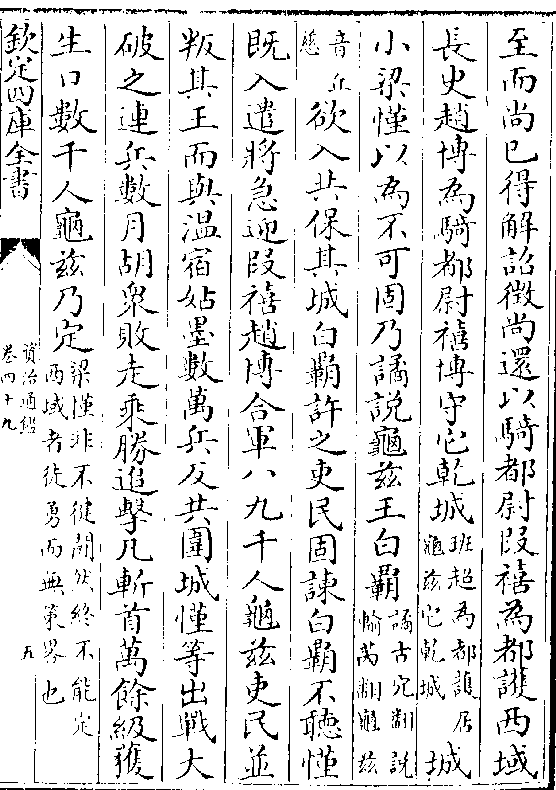 至而尚已得解詔徴尚還以騎都尉段禧為都護西域
長史趙博為騎都尉禧博守它乾城班超為都護居龜兹它乾城城
小梁慬以為不可固乃譎說龜兹王白霸譎古穴翻說輸芮翻龜兹
音丘慈欲入共保其城白霸許之吏民固諫白霸不聽慬
既入遣將急迎段禧趙博合軍八九千人龜兹吏民並
叛其王而與溫宿姑墨數萬兵反共圍城慬等出戰大
破之連兵數月胡衆敗走乘勝追擊凡斬首萬餘級獲
生口數千人龜兹乃定梁慬非不健鬬然終不能定西域者徒勇而無策畧也
欽定四庫全書
資治通鑑
卷四十九
五